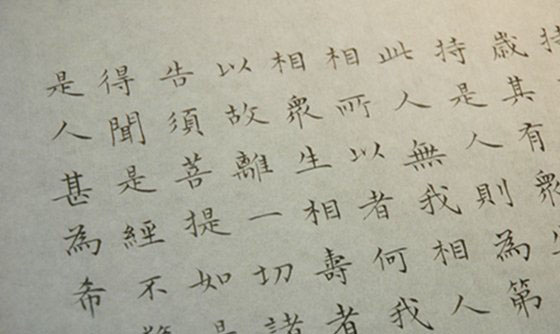 歲其有眾
持是人則為第
此人無我相人
相所以者何我
相眾生相壽者
以故離一切諸
告須菩提如是
得聞是經不驚
是人甚為希